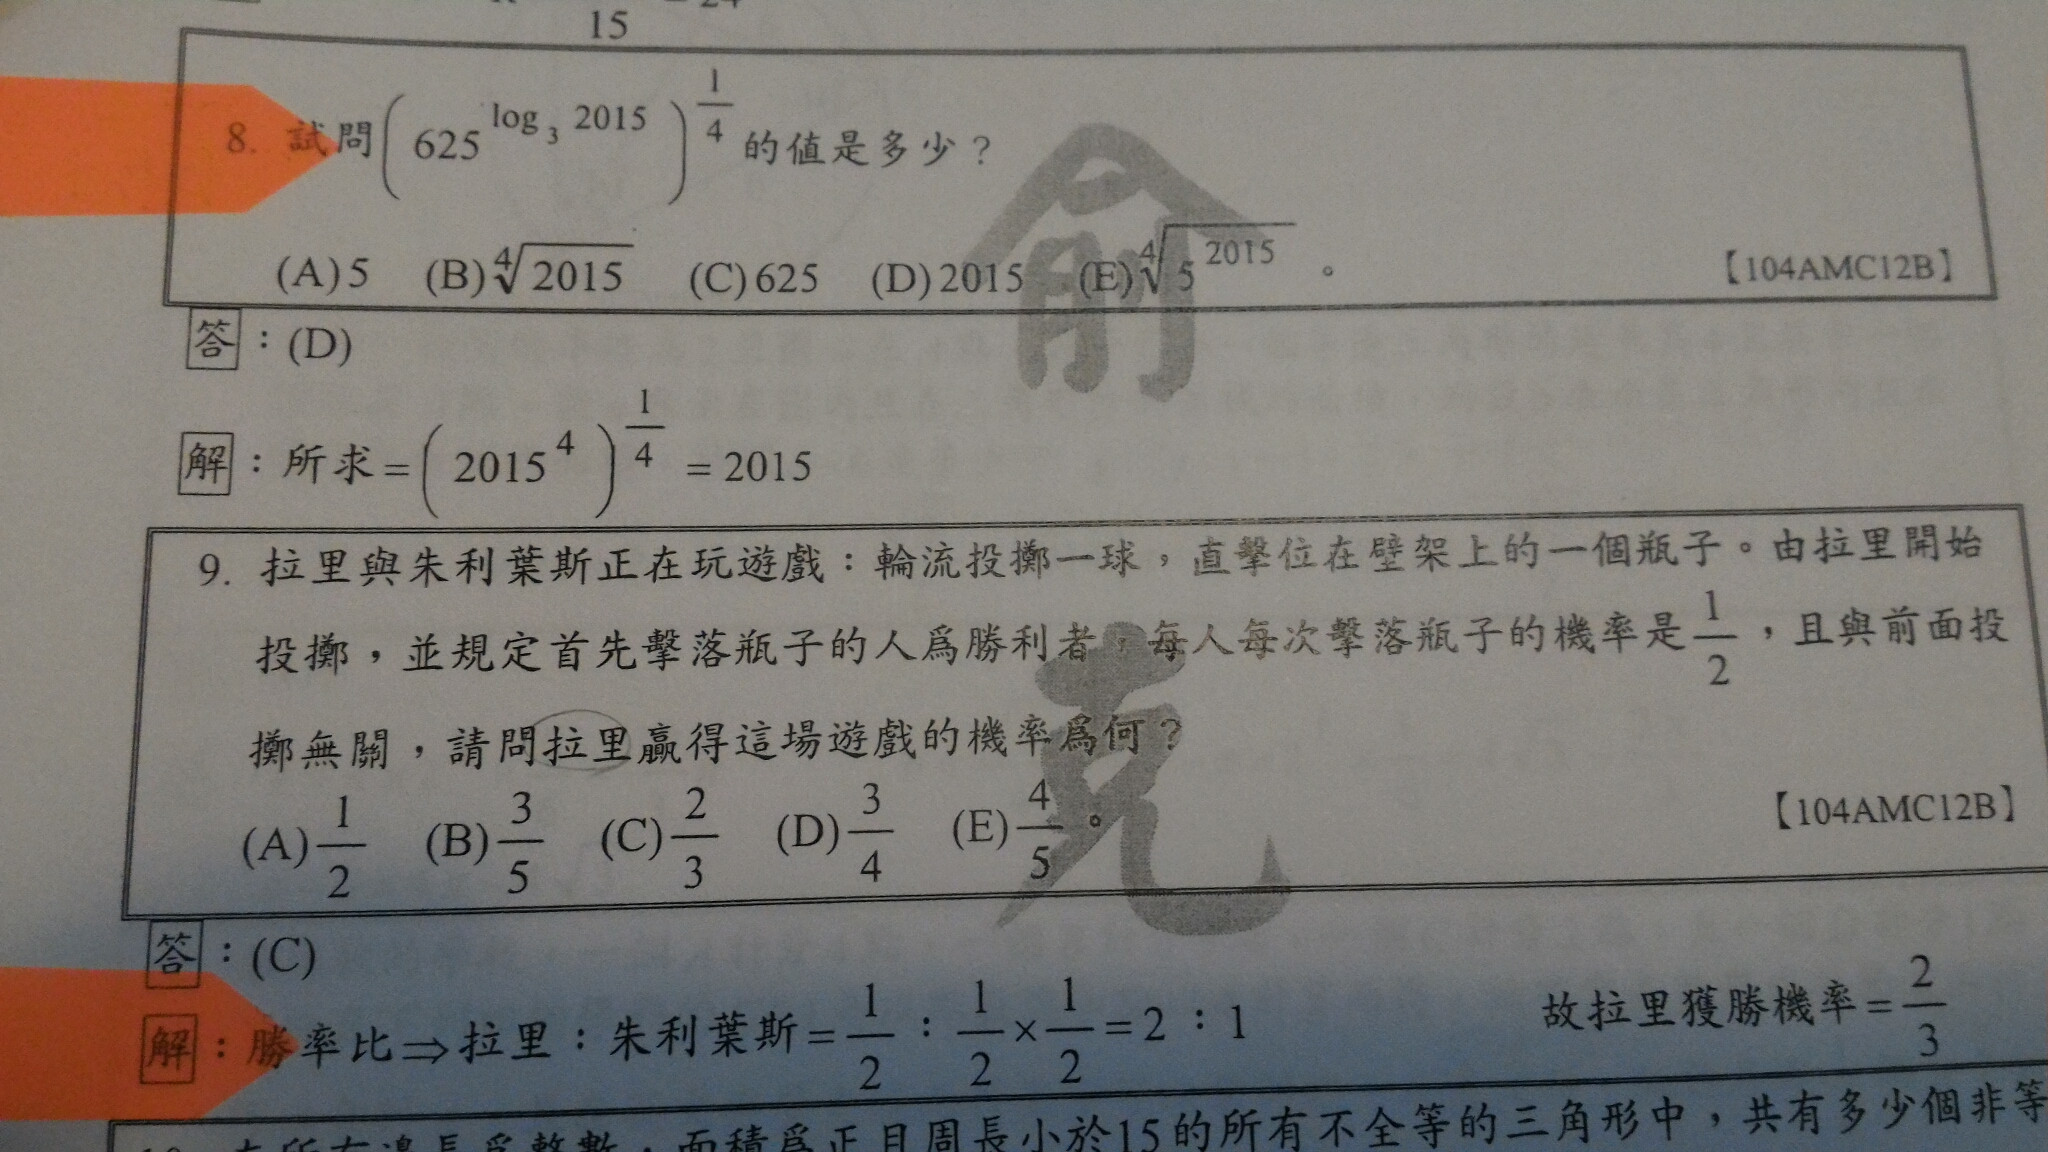 15
8. 試問(625^{log_3 2015})^{1/4}的值是多少？
(A)5 (B)∜2015 (C)625 (D)2015 (E)∜5^{2015}。 【104AMC12B】
答：(D)
解：所求=(2015^4)^{1/4}=2015
9. 拉里與朱利葉斯正在玩遊戲：輪流投擲一球，直擊位在壁架上的一個瓶子。由拉里開始
投擲，並規定首先擊落瓶子的人爲勝利者，每人每次擊落瓶子的機率是1/2，且與前面投
擲無關，請問拉里贏得這場遊戲的機率爲何？
(A)1/2 (B)3/5 (C)2/3 (D)3/4 (E)4/5。 【104AMC12B】
答：(C)
解：勝率比⇒拉里：朱利葉斯=1/2：1/2×1/2=2：1 故拉里獲勝機率=2/3
面積爲正且周長小於15的所有不全等的三角形中，共有多少個非等
俞
克